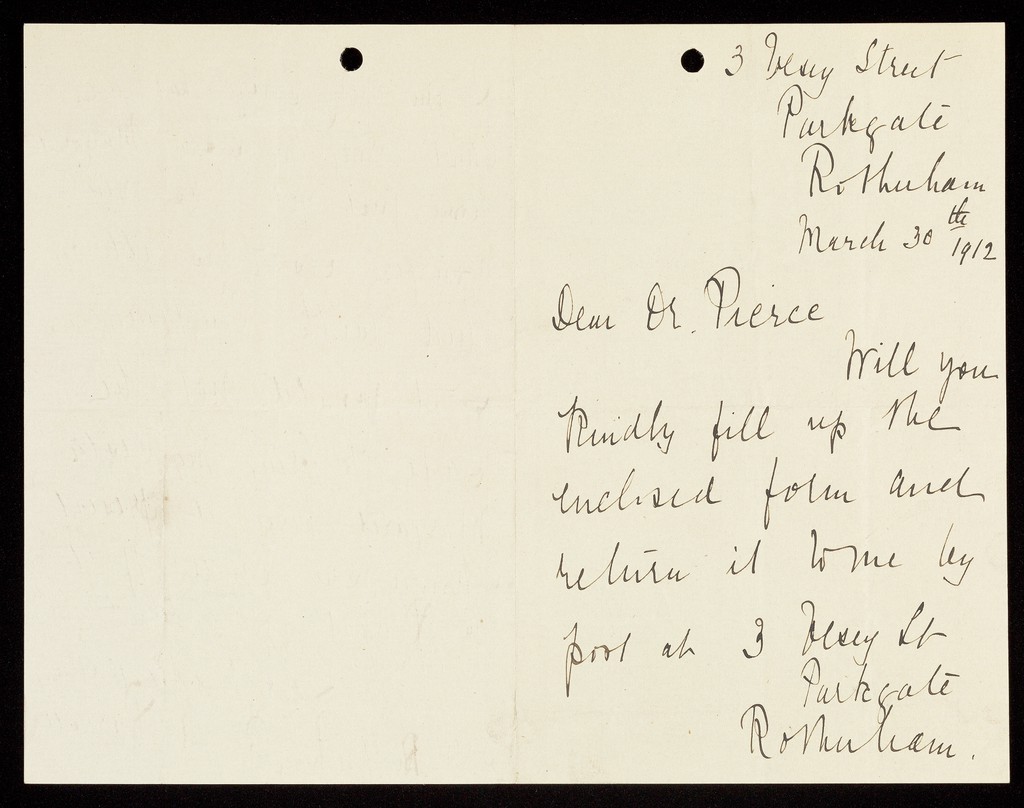 3 Vesey Street
Parkgate
Rotherham
March 30th 1912
Dear Dr. Pierce
Will you
kindly fill up the
enclosed form and
return it to me by
post at 3 Vesey St
Parkgate
Rotherham.